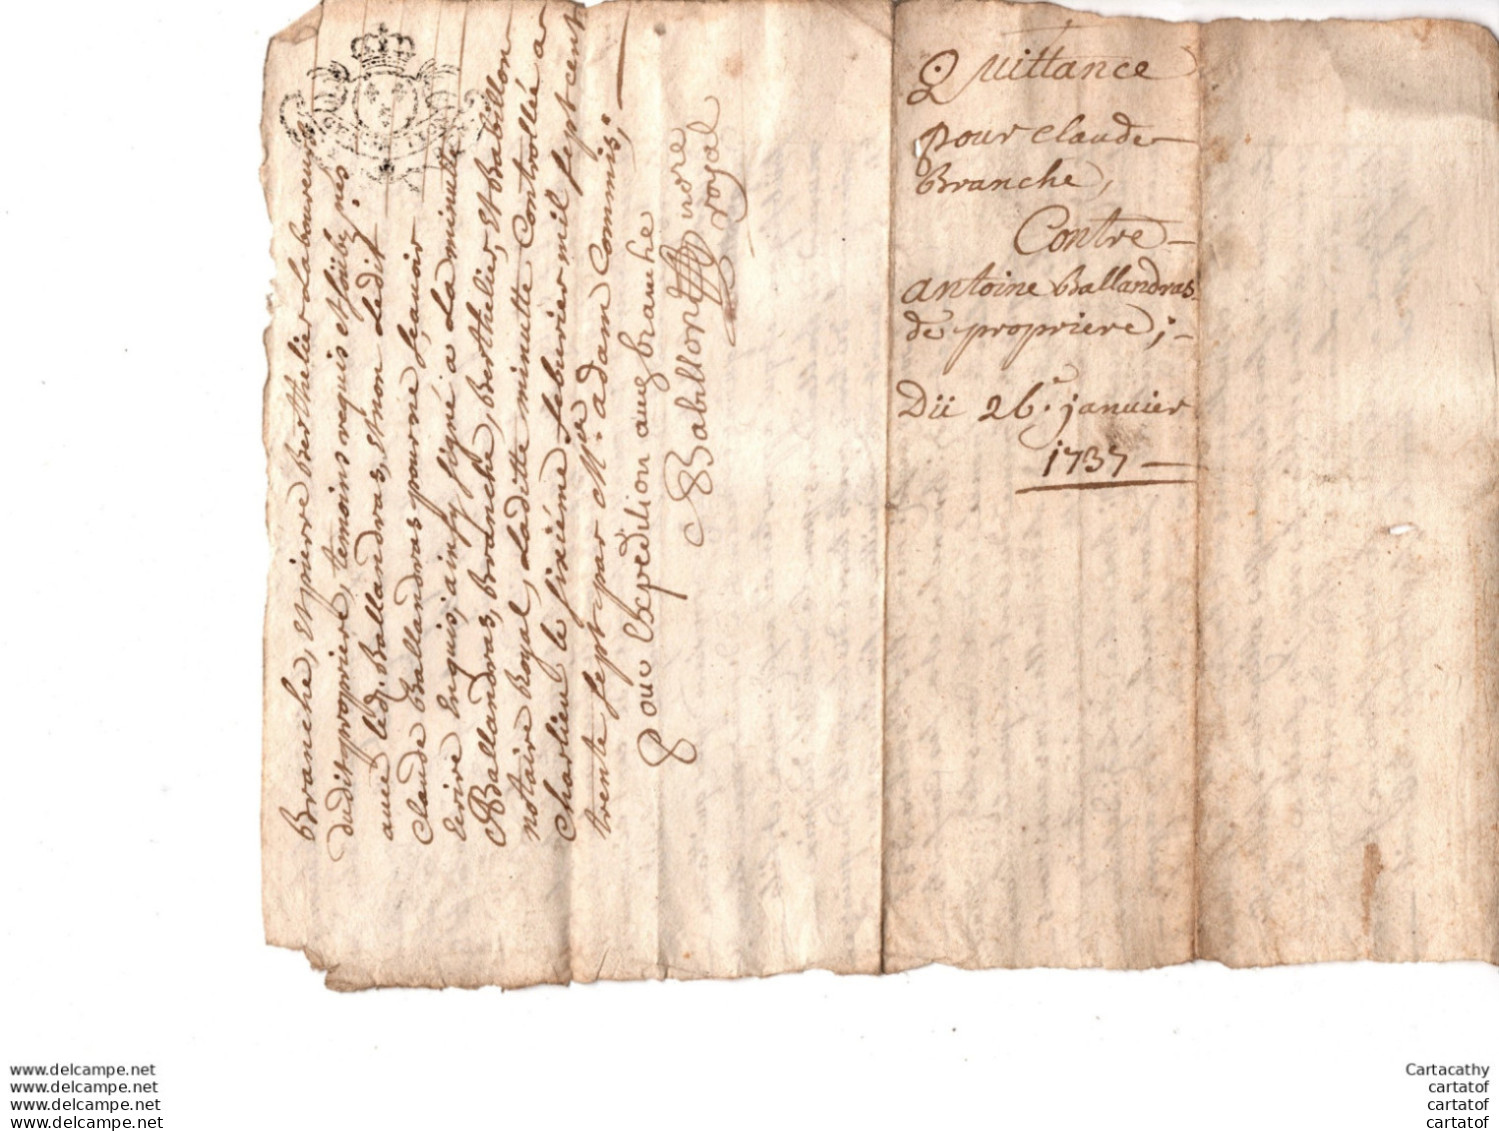 Branche, et pierre Berthelier Laboureurs
dudit propriere, temoins requis et
avec led. Ballandras, et non Ledit
Claude Ballandras pour ne sçauoir
Ecrire Enquis, ainsy signé a La minutte
Ballandras, Branche, Berthelier, et Babillon
notaire Royal, Laditte minutte Controllée a
Charlieu le sixiéme feburier mil sept cent
trente sept par Mr. adam Commis;
Pour Expédition aud branche
Babillon nore
royal
Quittance
pour claude
Branche,
Contre
antoine Ballandras
de propriere;
Dü 26e. januier
1737
www.delcampe.net
www.delcampe.net
www.delcampe.net
www.delcampe.net
Cartacathy
cartatof
cartatof
cartatof